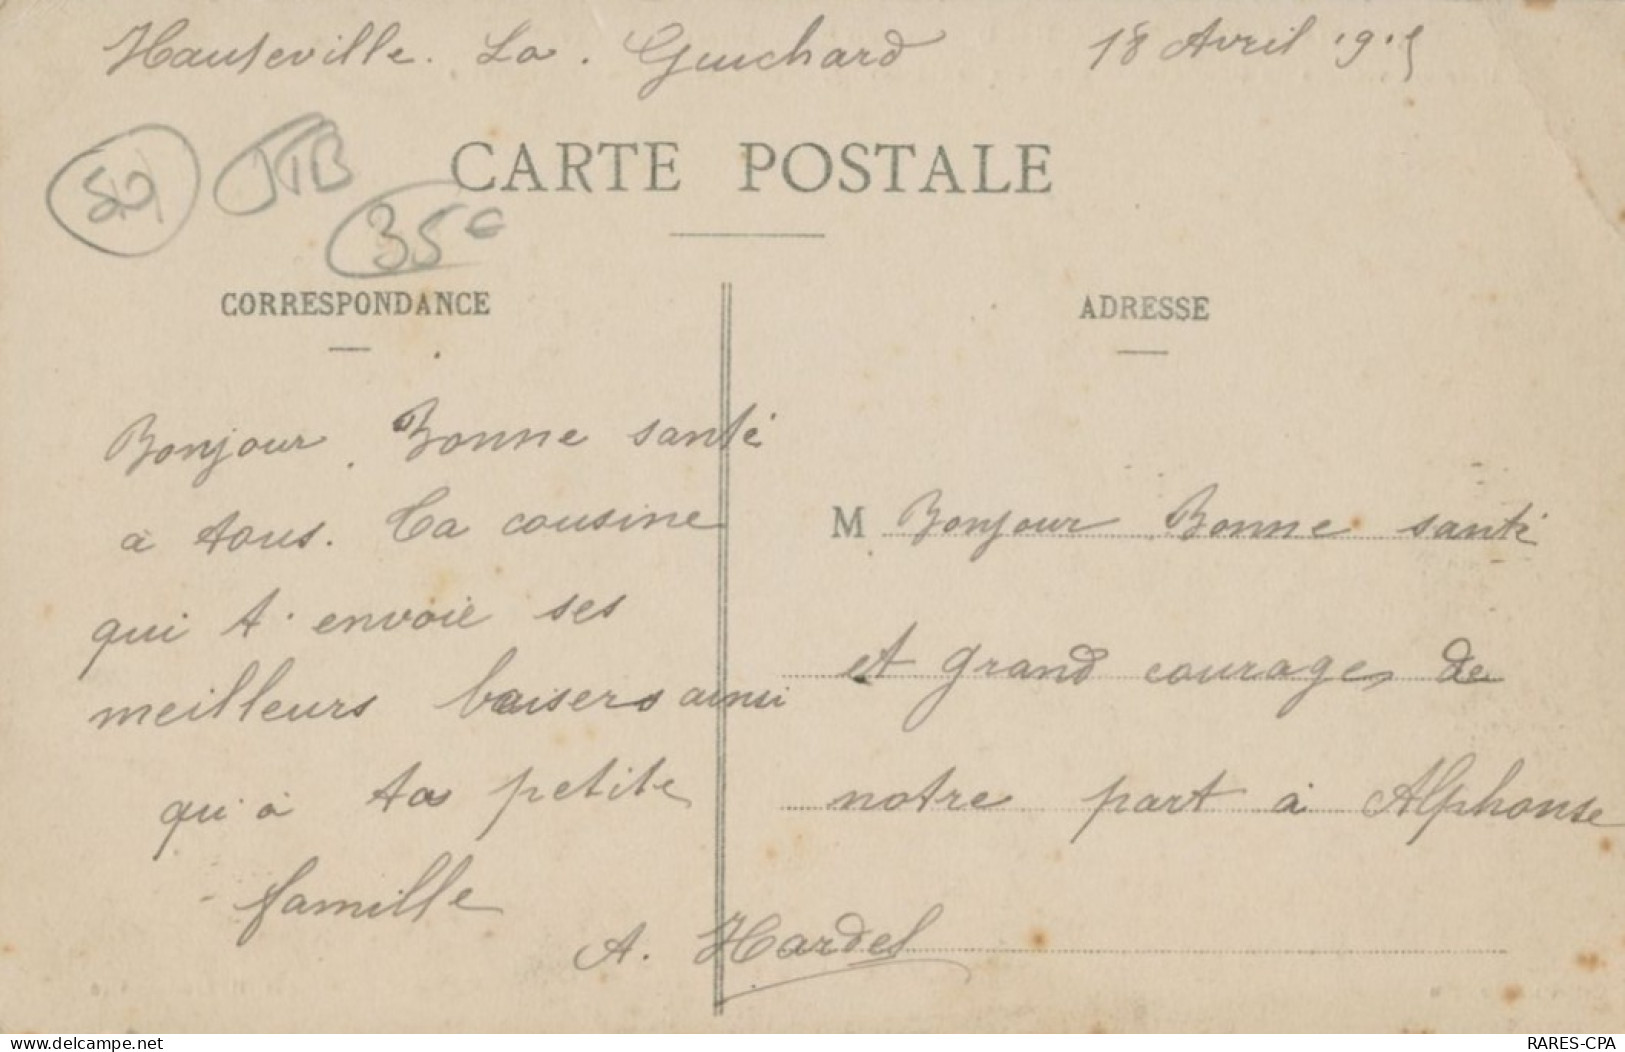 Hauteville. La. Guichard 18 Avril 1915
50 JTB
35€
CARTE POSTALE
CORRESPONDANCE
ADRESSE
Bonjour. Bonne santé
à tous. Ta cousine
qui t'envoie ses
meilleurs baisers ainsi
qu'à ta petite
famille
M Bonjour Bonne santé
et grand courage de
notre part à Alphonse
A. Hardel
delcampe.net
RARES-CPA